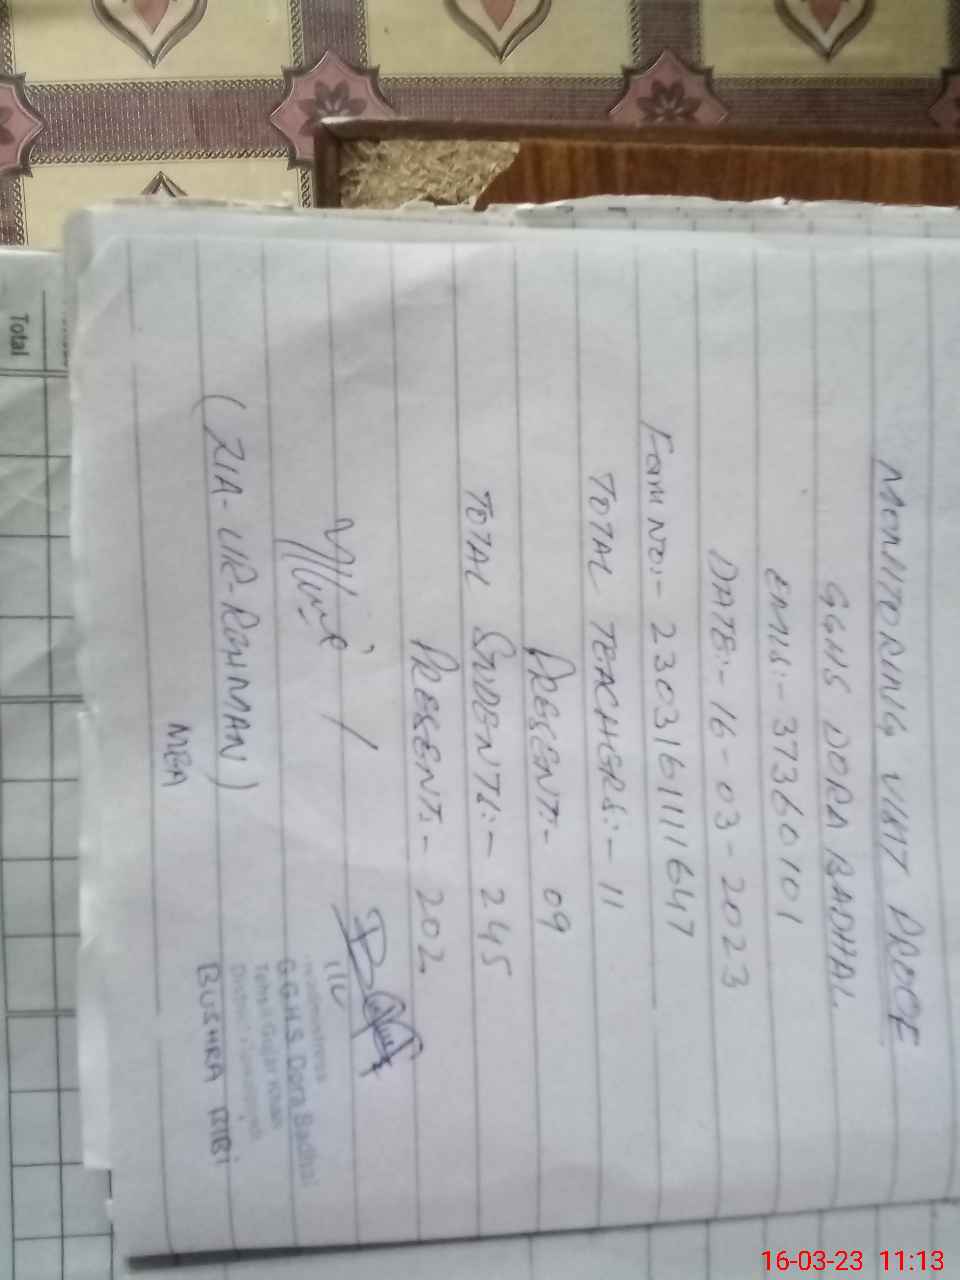 MONITORING VISIT PROOF
GGHS DORA BADHAL
EMIS:- 37360101
DATE:- 16-03-2023
Form No:- 23031611111647
TOTAL TEACHERS:- 11
PRESENT:- 09
TOTAL STUDENTS:- 245
PRESENT:- 202
(ZIA-UR-REHMAN)
MEA
I/C
Headmistress
G.G.H.S. Dora Badhal
Tehsil Gujar Khan
District Rawalpindi
BUSHRA BIBI
Total
16-03-23 11:13